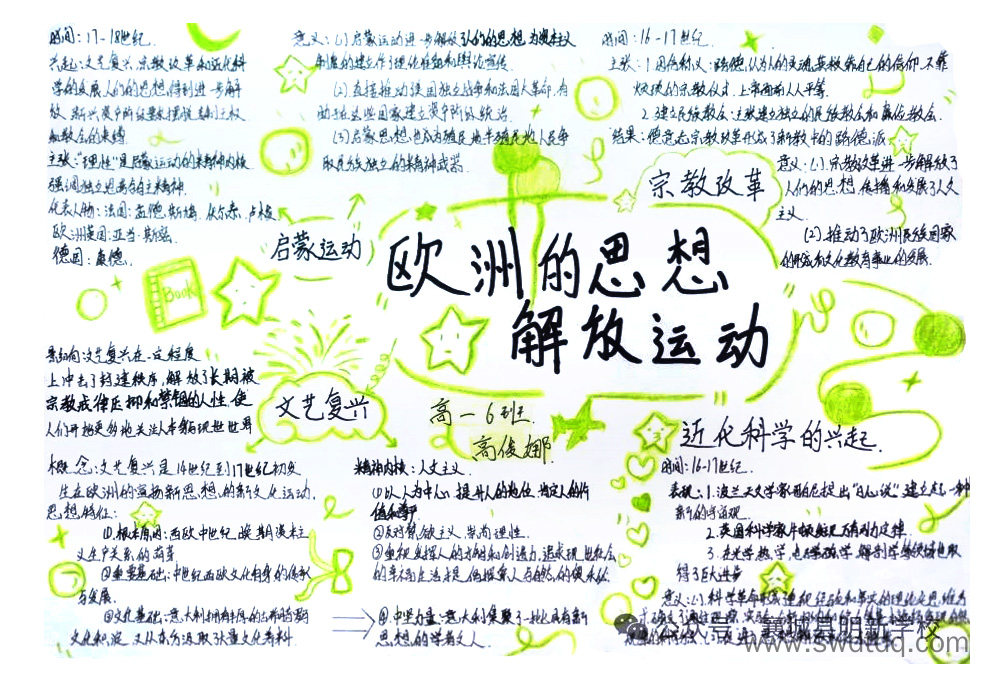 时间：17-18世纪.
兴起：文艺复兴、宗教改革和近代科
学的发展，人们的思想得到进一步解
放，新兴资产阶级要摆脱封建主权
和教会的束缚
主张："理性"是启蒙运动的精神内核
强调独立思考自主精神.
代表人物：法国：孟德斯鸠、伏尔泰、卢梭
欧洲英国：亚当·斯密.
德国：康德.
意义：(1)启蒙运动进一步解放了人们的思想，为资本主义
制度的建立作了理论准备和舆论宣传.
(2)直接推动美国独立战争和法国大革命，有
助于这些国家建立资产阶级统治.
(3)启蒙思想也成为殖民地半殖民地人民争
取民族独立的精神武器.
启蒙运动
时间：16-17世纪.
主张：1.因信称义：路德认为人的灵魂获救靠自己的信仰，不靠
烦琐的宗教仪式，上帝面前人人平等.
2.建立民族教会：主张建立独立的民族教会和廉俭教会.
结果：德意志宗教改革形成了新教中的路德派
意义：(1)宗教改革进一步解放了
人们的思想，传播和发展了人文
主义.
(2).推动了欧洲民族国家
的形成和文化教育事业的发展.
宗教改革
欧洲的思想
解放运动
高一6班.
高俊娜.
Book
影响：文艺复兴在一定程度
上冲击了封建秩序，解放了长期被
宗教戒律压抑和禁锢的人性，使
人们开始更多地关注人本身与现世世界
文艺复兴
概念：文艺复兴是14世纪到17世纪初发
生在欧洲的宣扬新思想的新文化运动.
思想特征：
①根本原因：西欧中世纪晚期资本主
义生产关系的萌芽
②重要基础：中世纪西欧文化自身的传承
与发展.
③文化基础：意大利拥有丰厚的古希腊罗马
文化积淀，又从东方汲取大量文化养料.
精神内核：人文主义.
①以人为中心，提升人的地位，肯定人的价
值和尊严
②反对禁欲主义，崇尚理性.
③重视发挥人的才能和创造力，追求现世社会
的幸福生活，提倡探索人与自然的奥秘.
④中坚力量：意大利集聚了一批具有新
思想的学者文人
近代科学的兴起.
时间：16-17世纪.
表现：1.波兰天文学家哥白尼提出"日心说"，建立起一种
新的宇宙观.
2.英国科学家牛顿发现万有引力定律.
3.在光学、热学、电磁学、解剖学等领域也取
得了巨大进步
意义：(1)科学革命形成
公众号·襄城县明新学校
www.swdtdq.com